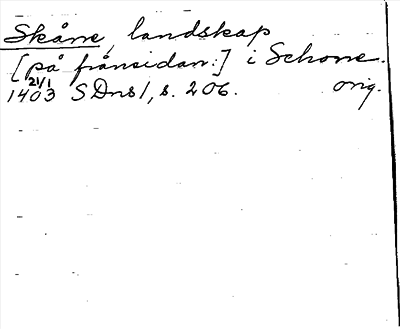 Skåne, landskap
[på frånsidan:] i Schone.
21/1
1403 SDns 1, s. 206. orig.